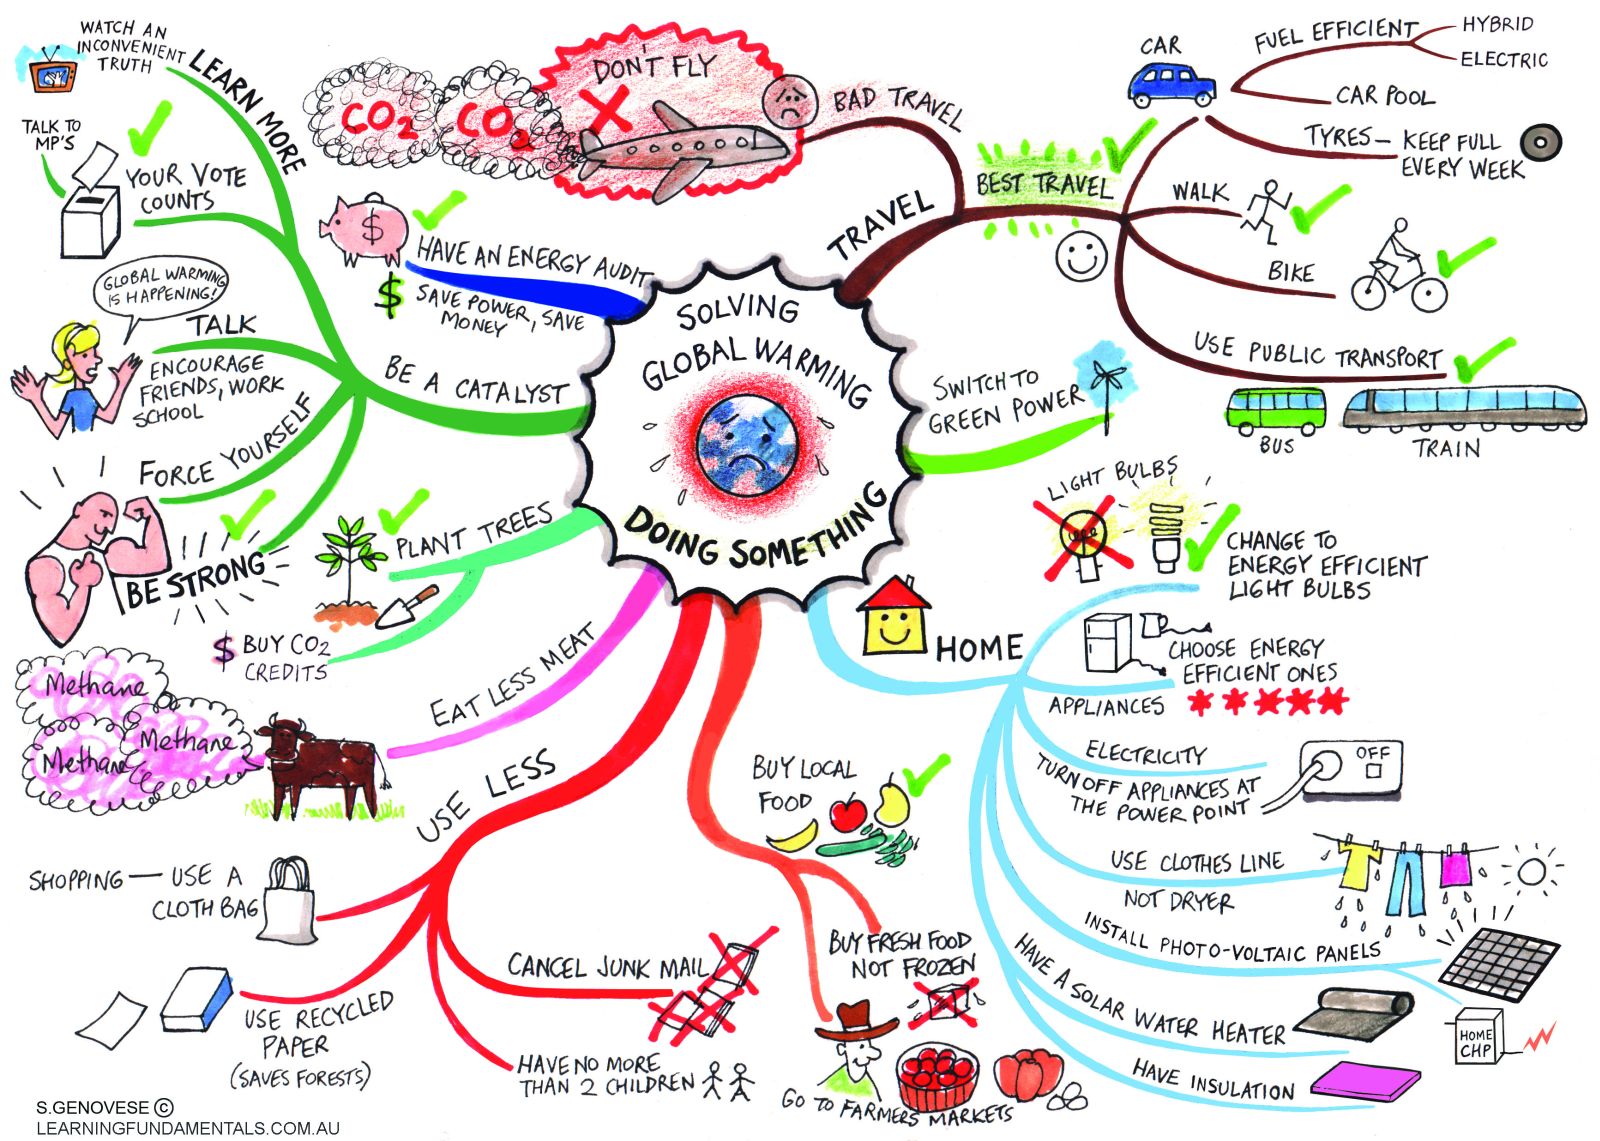 SOLVING
GLOBAL WARMING
DOING SOMETHING
TRAVEL
BAD TRAVEL
DON'T FLY
CO2
CO2
BEST TRAVEL
CAR
FUEL EFFICIENT
HYBRID
ELECTRIC
CAR POOL
TYRES — KEEP FULL
EVERY WEEK
WALK
BIKE
USE PUBLIC TRANSPORT
BUS
TRAIN
SWITCH TO
GREEN POWER
HOME
LIGHT BULBS
CHANGE TO
ENERGY EFFICIENT
LIGHT BULBS
CHOOSE ENERGY
EFFICIENT ONES
APPLIANCES
ELECTRICITY
TURN OFF APPLIANCES AT
THE POWER POINT
OFF
USE CLOTHES LINE
NOT DRYER
INSTALL PHOTO-VOLTAIC PANELS
HOME
CHP
HAVE A SOLAR WATER HEATER
HAVE INSULATION
BUY LOCAL
FOOD
BUY FRESH FOOD
NOT FROZEN
GO TO FARMERS MARKETS
USE LESS
SHOPPING — USE A
CLOTH BAG
USE RECYCLED
PAPER
(SAVES FORESTS)
CANCEL JUNK MAIL
HAVE NO MORE
THAN 2 CHILDREN
EAT LESS MEAT
Methane
Methane
Methane
PLANT TREES
$ BUY CO2
CREDITS
BE A CATALYST
LEARN MORE
WATCH AN
INCONVENIENT
TRUTH
TALK TO
MP'S
YOUR VOTE
COUNTS
GLOBAL WARMING
IS HAPPENING!
TALK
ENCOURAGE
FRIENDS, WORK
SCHOOL
FORCE YOURSELF
BE STRONG
$
HAVE AN ENERGY AUDIT
$ SAVE POWER, SAVE
MONEY
S.GENOVESE ©
LEARNINGFUNDAMENTALS.COM.AU